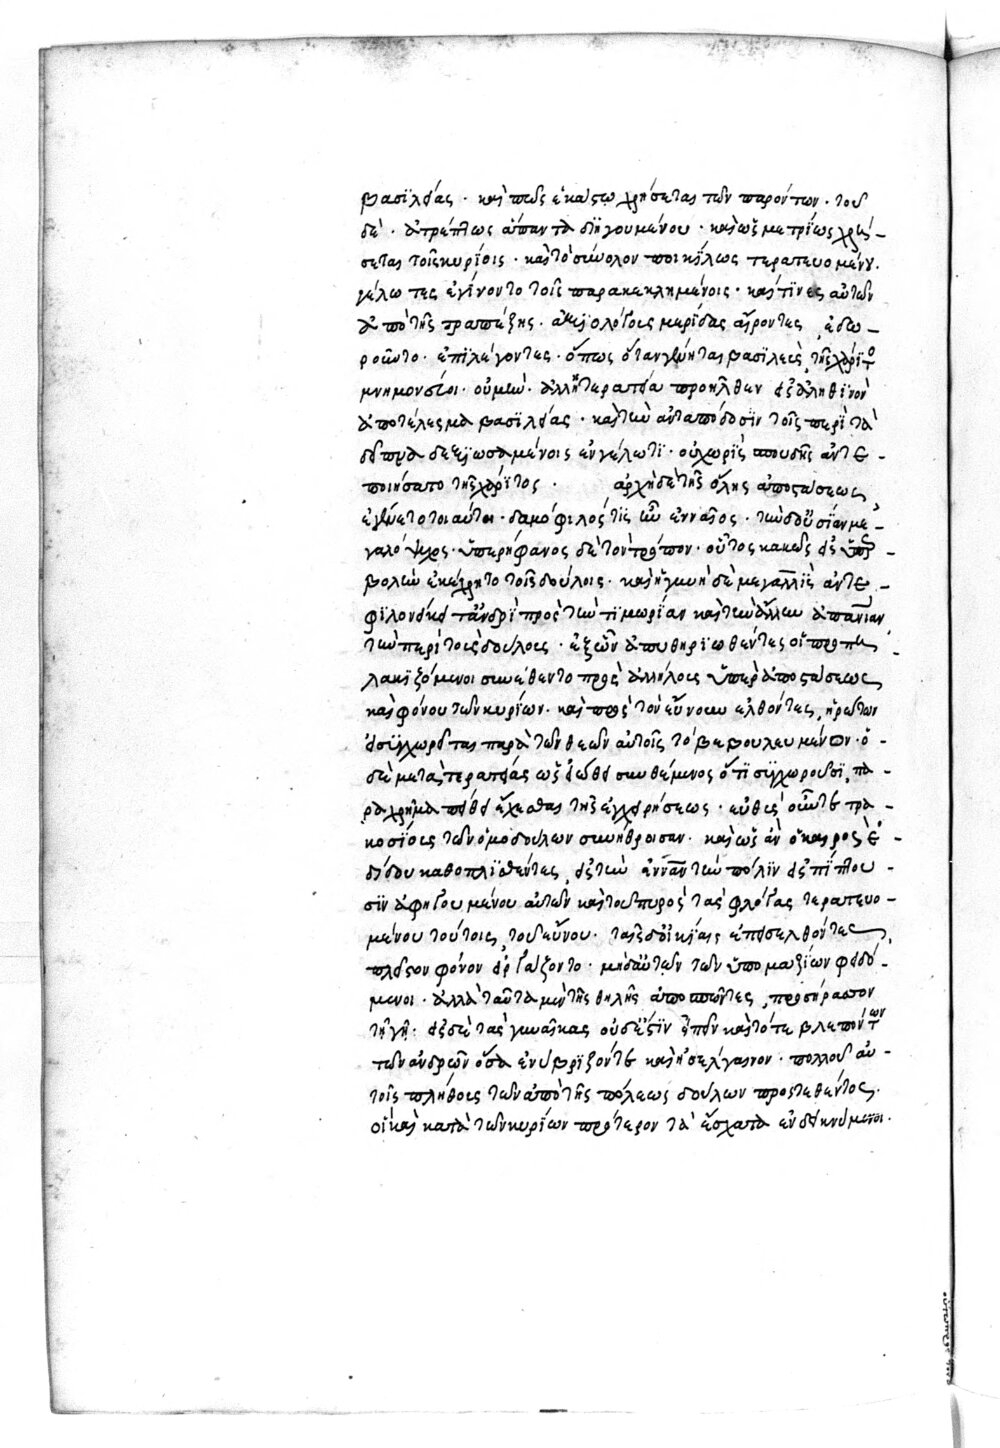 βασιλείας · καὶ πῶς ἑκάστω χρήσεται τῶν παρόντων · τοῦ
δὲ · ἀτρέπτως ἅπαντα διηγουμένου · καὶ ὡς μετρίως χρή-
σεται τοῖς κυρίοις · καὶ τὸ σύνολον ποικίλως τερατευομένου ·
γέλωτες ἐγίνοντο τοῖς παρακεκλημένοις · καί τινες αὐτῶν
ἀπὸ τῆς τραπέζης · ἀξιολόγους μερίδας αἴροντες, ἐδω-
ροῦντο · ἐπιλέγοντες · ὅπως ὅταν γένηται βασιλεὺς, τῆς χάριτος
μνημονεύοι · οὐ μὴν · ἀλλ' ἡ τερατεία προῆλθεν εἰς ἀληθινὸν
ἀποτέλεσμα βασιλείας · καὶ τὴν ἀνταπόδοσιν τοῖς περὶ τὰ
δεῖπνα δεξιωσαμένοις ἐν γέλωτι · οὐ χωρὶς σπουδῆς ἀντε-
ποιήσατο τῆς χάριτος · ἀρχὴ δὲ τῆς ὅλης ἀποστάσεως,
ἐγένετο τοιαύτη · δαμόφιλός τις ἦν ἐνναῖος · τὴν δ' οὐσίαν με-
γαλόψυχος · ὑπερήφανος δὲ τὸν τρόπον · οὗτος κακῶς εἰς ὑπερ-
βολὴν ἐκέχρητο τοῖς δούλοις · καὶ ἡ γυνὴ δὲ μεγαλλὶς ἀντε-
φιλονείκει τἀνδρὶ πρὸς τὴν τιμωρίαν καὶ τὴν ἄλλην ἀπανθρωπίαν
τὴν περὶ τοὺς δούλους · ἐξ ὧν ἀποθηριωθέντες οἱ προπη-
λακιζόμενοι συνέθεντο πρὸς ἀλλήλους ὑπὲρ ἀποστάσεως
καὶ φόνου τῶν κυρίων · καὶ πρὸς τὸν εὔνουν ἐλθόντες, ἠρώτων
εἰ συγχωρεῖται παρὰ τῶν θεῶν αὐτοῖς τὸ βεβουλευμένον · ὁ-
δὲ μετὰ τερατείας ὡς εἰώθει συνθέμενος ὅτι συγχωροῦσι, πα-
ραχρῆμα πείθει ἔχεσθαι τῆς ἐγχειρήσεως · εὐθὺς οὖν τετρα-
κοσίους τῶν ὁμοδούλων συνήθροισαν · καὶ ὡς ἂν ὁ καιρὸς ἐ-
δίδου καθοπλισθέντες, εἰς τὴν ἔνναν τὴν πόλιν εἰσπίπτου-
σιν ἀφηγουμένου αὐτῶν καὶ τοῦ πυρὸς τὰς φλόγας τερατευο-
μένου τούτοις, τοῦ εὔνου · ταῖς δ' οἰκίαις ἐπεισελθόντες,
πλεῖστον φόνον εἰργάζοντο · μηδ' αὐτῶν τῶν ὑπομαζίων φειδό-
μενοι · ἀλλὰ ταῦτα μὲν τῆς θηλῆς ἀποσπῶντες, προσήρασσον
τῇ γῇ · εἰς δὲ τὰς γυναῖκας οὐδ' ἔστιν εἰπεῖν καὶ τότε βλεπόντων
τῶν ἀνδρῶν ὅσα ἐνυβρίζοντες καὶ ἠσέλγαινον · πολλοῦ αὐ-
τοῖς πλήθους τῶν ἀπὸ τῆς πόλεως δούλων προστεθέντος ·
οἳ καὶ κατὰ τῶν κυρίων πρότερον τὰ ἔσχατα ἐνδεικνύμενοι ·